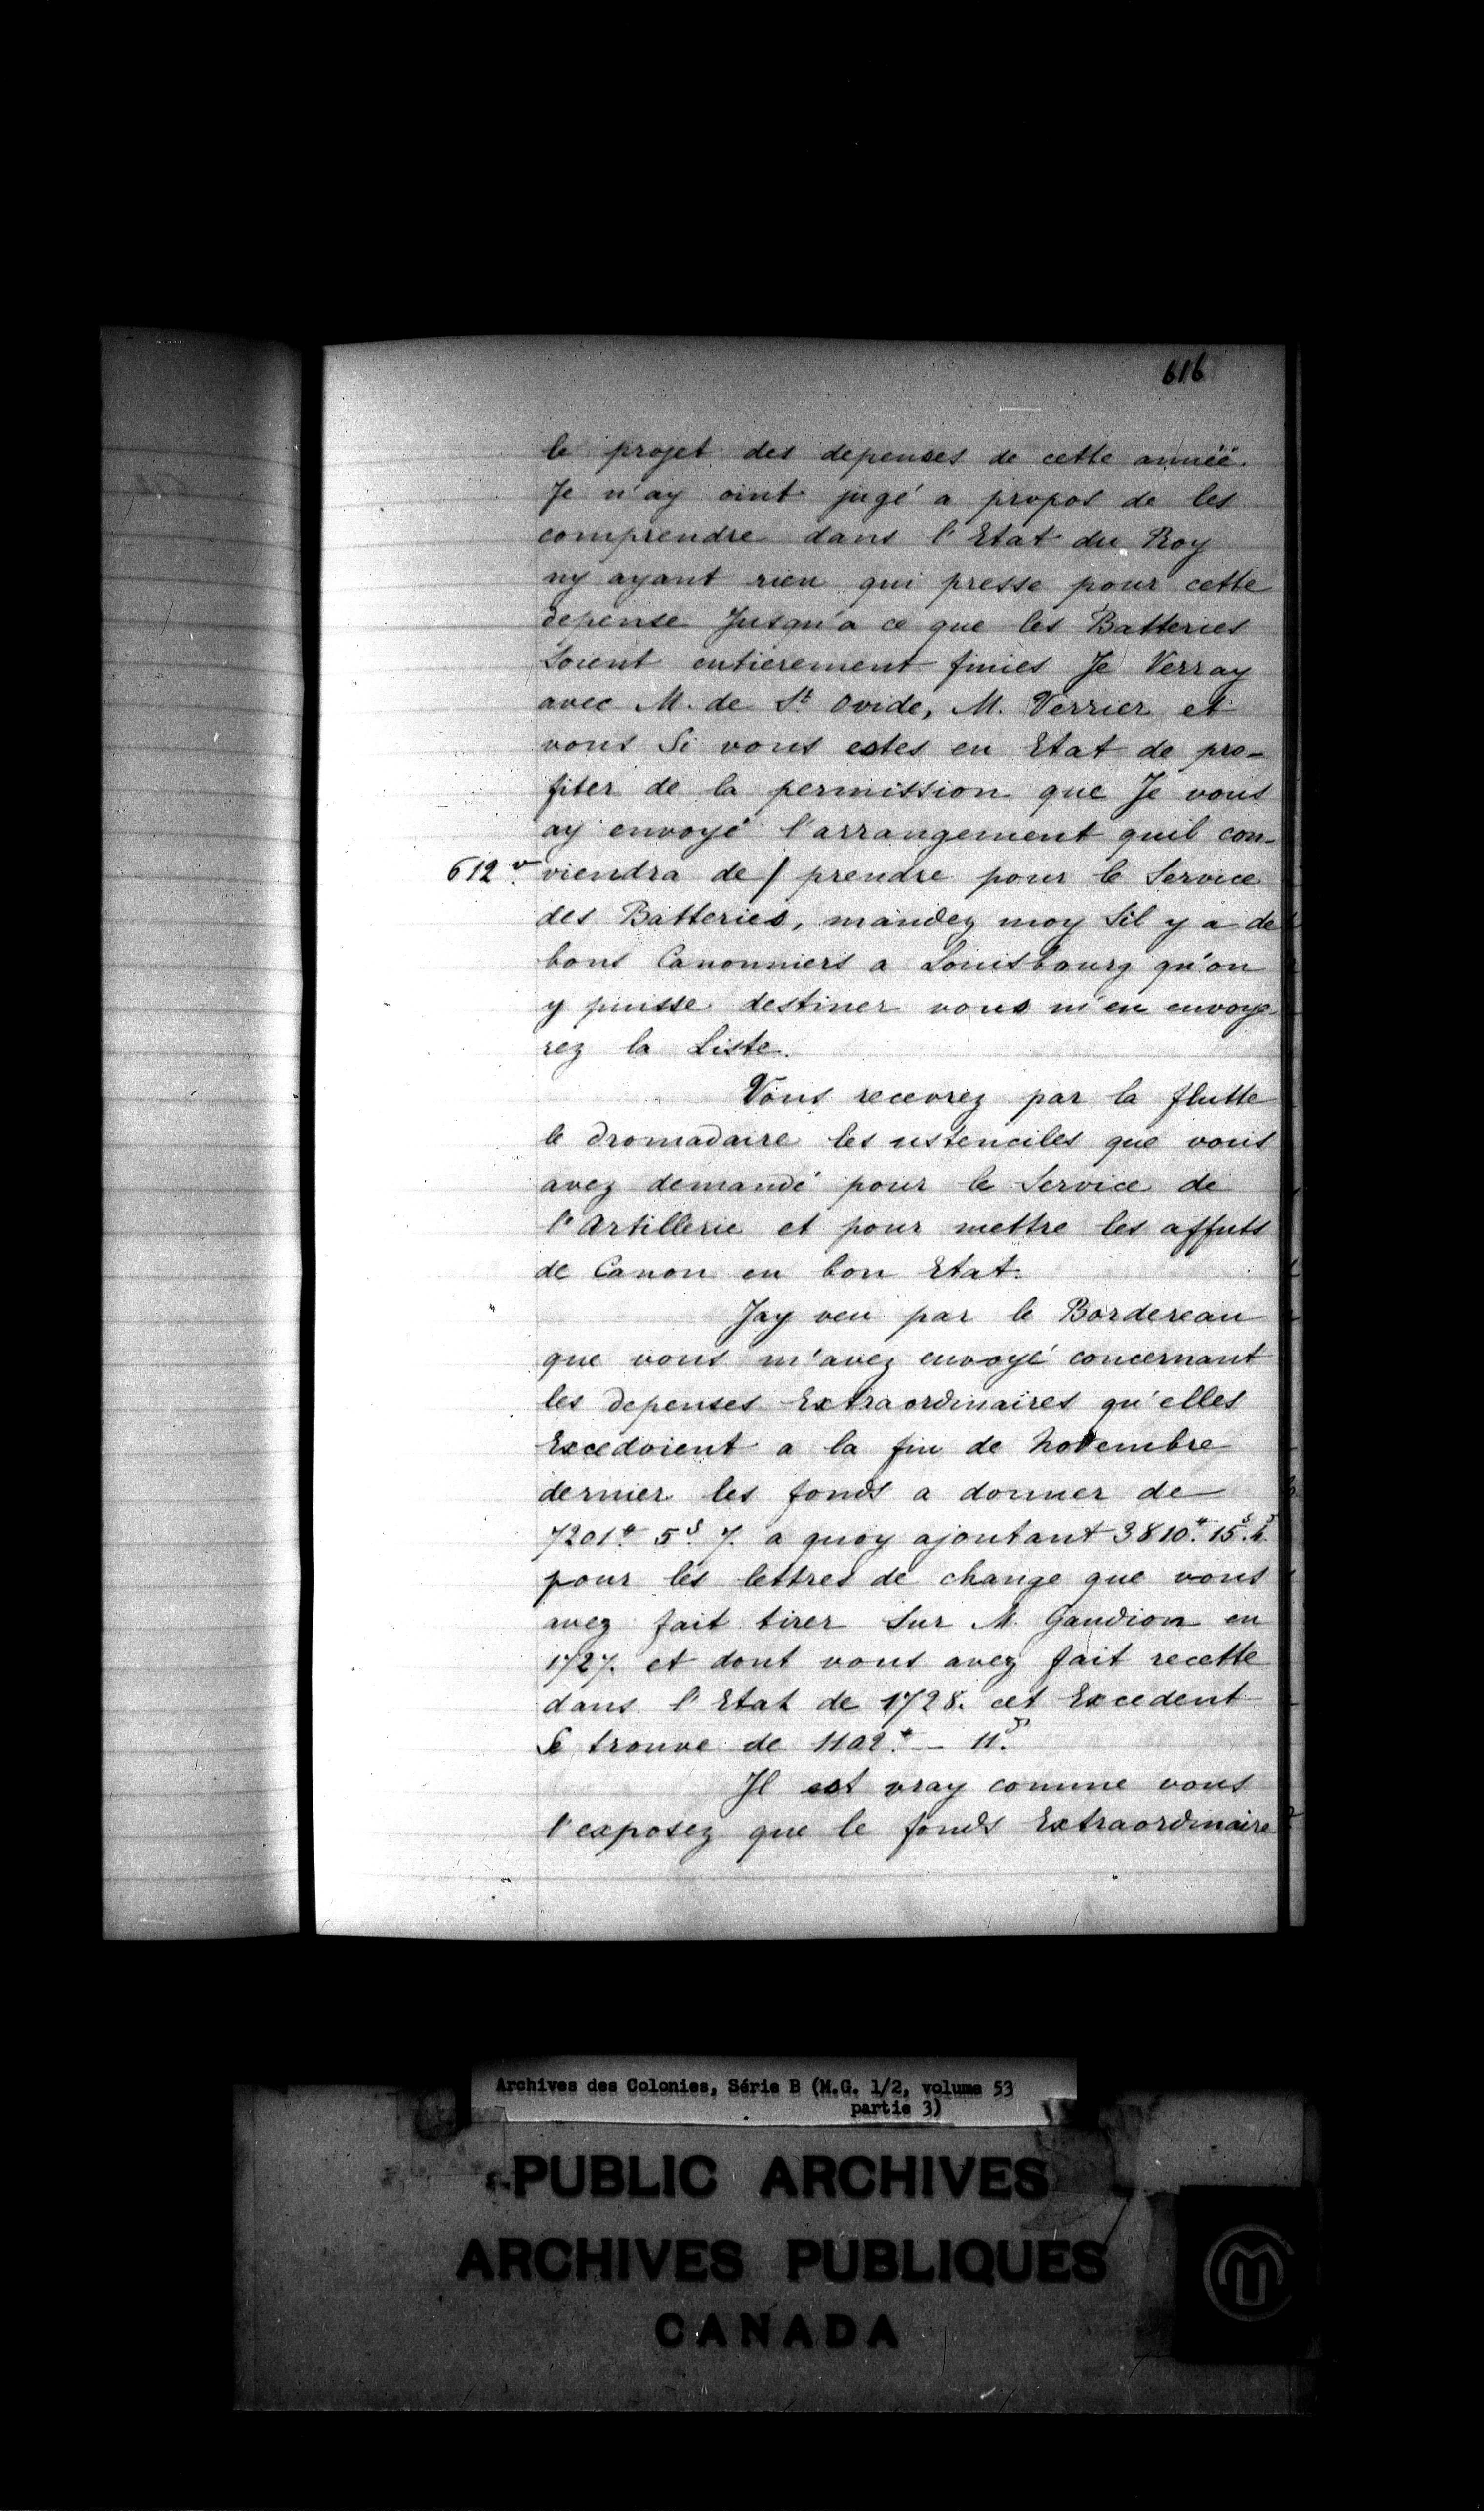 616
le projet des depenses de cette anneë.
Je n'ay oint jugé a propos de les
comprendre dans l'Etat du Roy
ny ayant rien qui presse pour cette
depense Jusqu'a ce que les Batteries
Soient entierement finies Je Verray
avec M. de St Ovide, M. Verrier et
vous Si vous estes en Etat de pro-
fiter de la permission que Je vous
ay envoyé l'arrangement quil con-
612 v. viendra de / prendre pour le Service
des Batteries, mandez moy Sil y a de
bons Canonniers a Louisbourg qu'on
y puisse destiner vous m'en envoye
rez la Liste.
Vous recevrez par la flutte
le dromadaire les ustenciles que vous
avez demandé pour le Service de
l'Artillerie et pour mettre les affuts
de Canon en bon Etat.
Jay veu par le Bordereau
que vous m'avez envoyé concernant
les depenses Extraordinaires qu'elles
Excedoient a la fin de Novembre
dernier les fonds a donner de
7201# 5s. 7. a quoy ajoutant 3810# 15s.
pour les lettres de change que vous
avez fait tirer Sur M. Gaudion en
1727. et dont vous avez fait recette
dans l'Etat de 1728. cet Excedent
Se trouve de 1102# - 11.
Il est vray comme vous
l'exposez que le fonds Extraordinaire
Archives des Colonies, Série B (M.G. 1/2, volume 53
partie 3)
PUBLIC ARCHIVES
ARCHIVES PUBLIQUES
CANADA